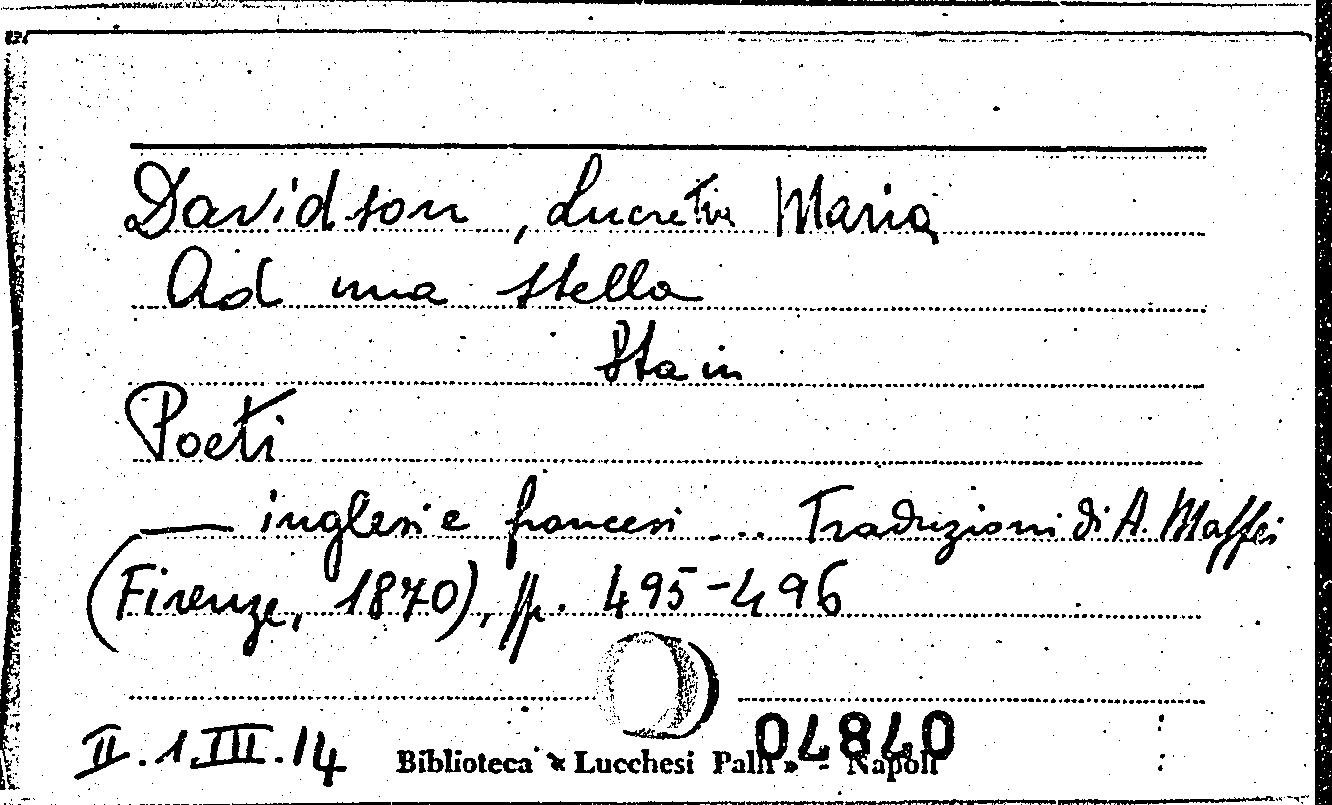 Davidson, Lucretia Maria
Ad una stella
Sta in
Poeti
— inglesi e francesi ... Traduzioni di A. Maffei
(Firenze, 1870), pp. 495-496
II.1.III.14
Biblioteca « Lucchesi Palli » - Napoli